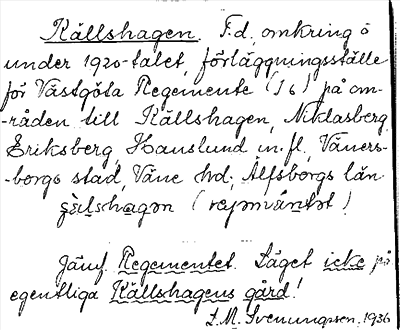 Källshagen. F.d, omkring å
under 1920-talet, förläggningsställe
för Västgöta Regemente (I 6) på om-
-råden till Källshagen, Niklasberg
Eriksberg, Hauslund m.fl, Väners-
-borgs stad, Väne hd, Älfsborgs län
(
Jämf. Regementet. Läget icke på
egentliga Källshagens gård!
L.M. Svenungsson. 1936